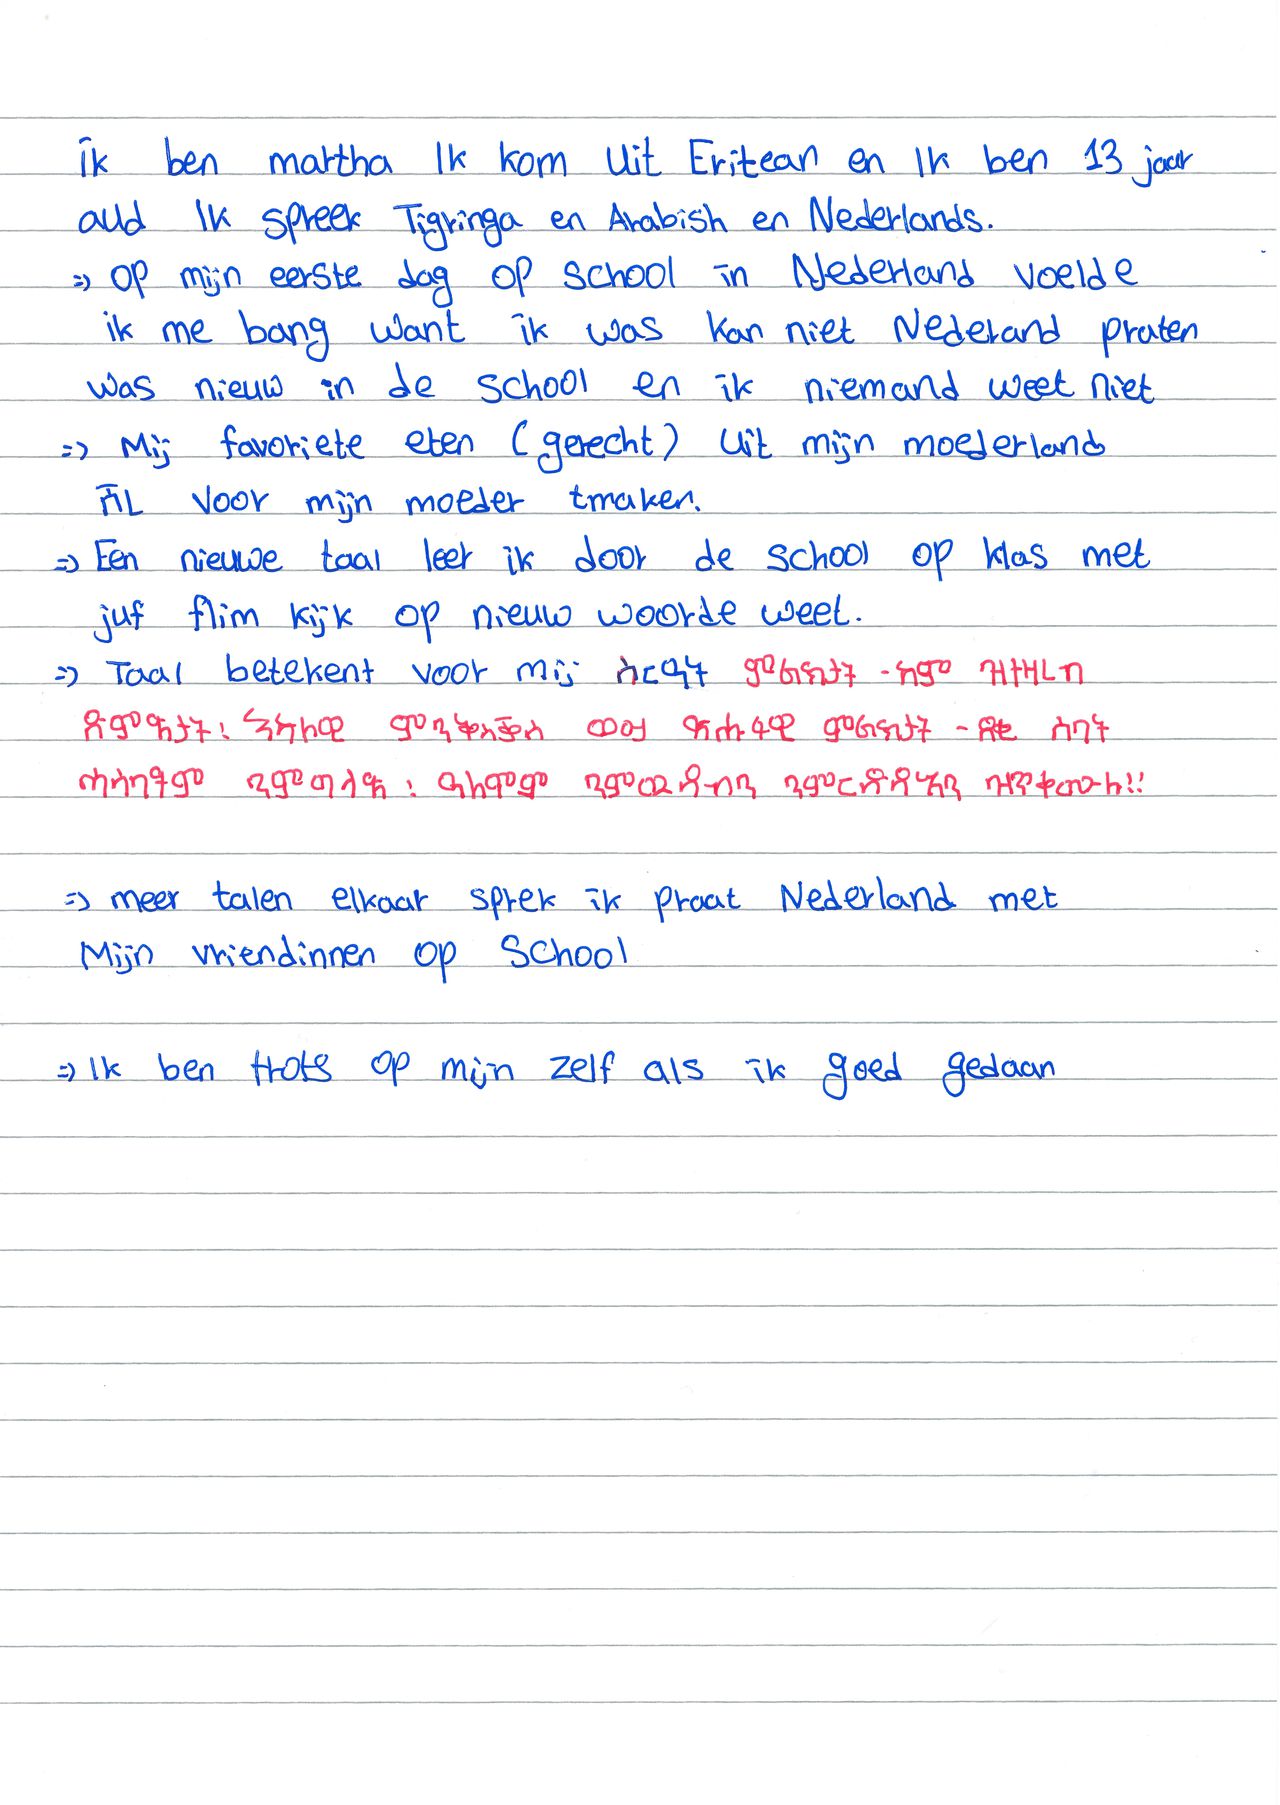 ik ben martha Ik kom Uit Eritean en Ik ben 13 jaar
aud Ik spreek Tigringa en Arabish en Nederlands.
=> OP mijn eerste dag op school in Nederland voelde
ik me bang want ik was kan niet Nederand praten
was nieuw in de school en ik niemand weet niet
=> Mij favoriete eten (gerecht) Uit mijn moederland
voor mijn moeder tmaken.
=> Een nieuwe taal leer ik door de school op klas met
juf flim kijk op nieuw woorde weet.
=> Taal betekent voor mij ስርዓት ምልክታት - ከም ዝተዛረብ
ድምጽታት፣ ምንቅስቓስ ወይ ጽሑፋዊ ምልክታት - ደቂ ሰባት
ሓሳባትም ንምግላጽ፣ ዓለምም ንምውዳብን ንምርድዳእን ዝጥቀሙሉ!!
=> meer talen elkaar sprek ik praat Nederland met
Mijn vriendinnen op School
=> Ik ben trots op mijn zelf als ik goed gedaan